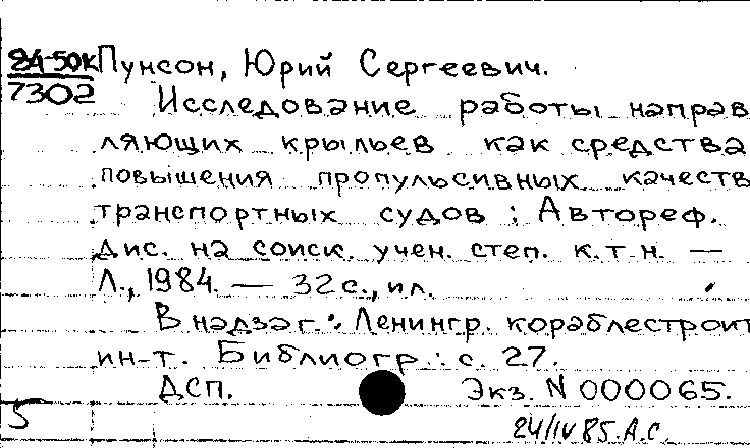 84-50к Пунсон, Юрий Сергеевич.
7302
Исследование работы направ
ляющих крыльев как средства
повышения пропульсивных качеств
транспортных судов : Автореф.
дис. на соиск. учен. степ. к.т.н. —
Л., 1984. — 32 с., ил.
В надзаг.: Ленингр. кораблестроит
ин-т. Библиогр.: с. 27.
ДСП. Экз. N 000065.
5
24/IV 85. А.С.